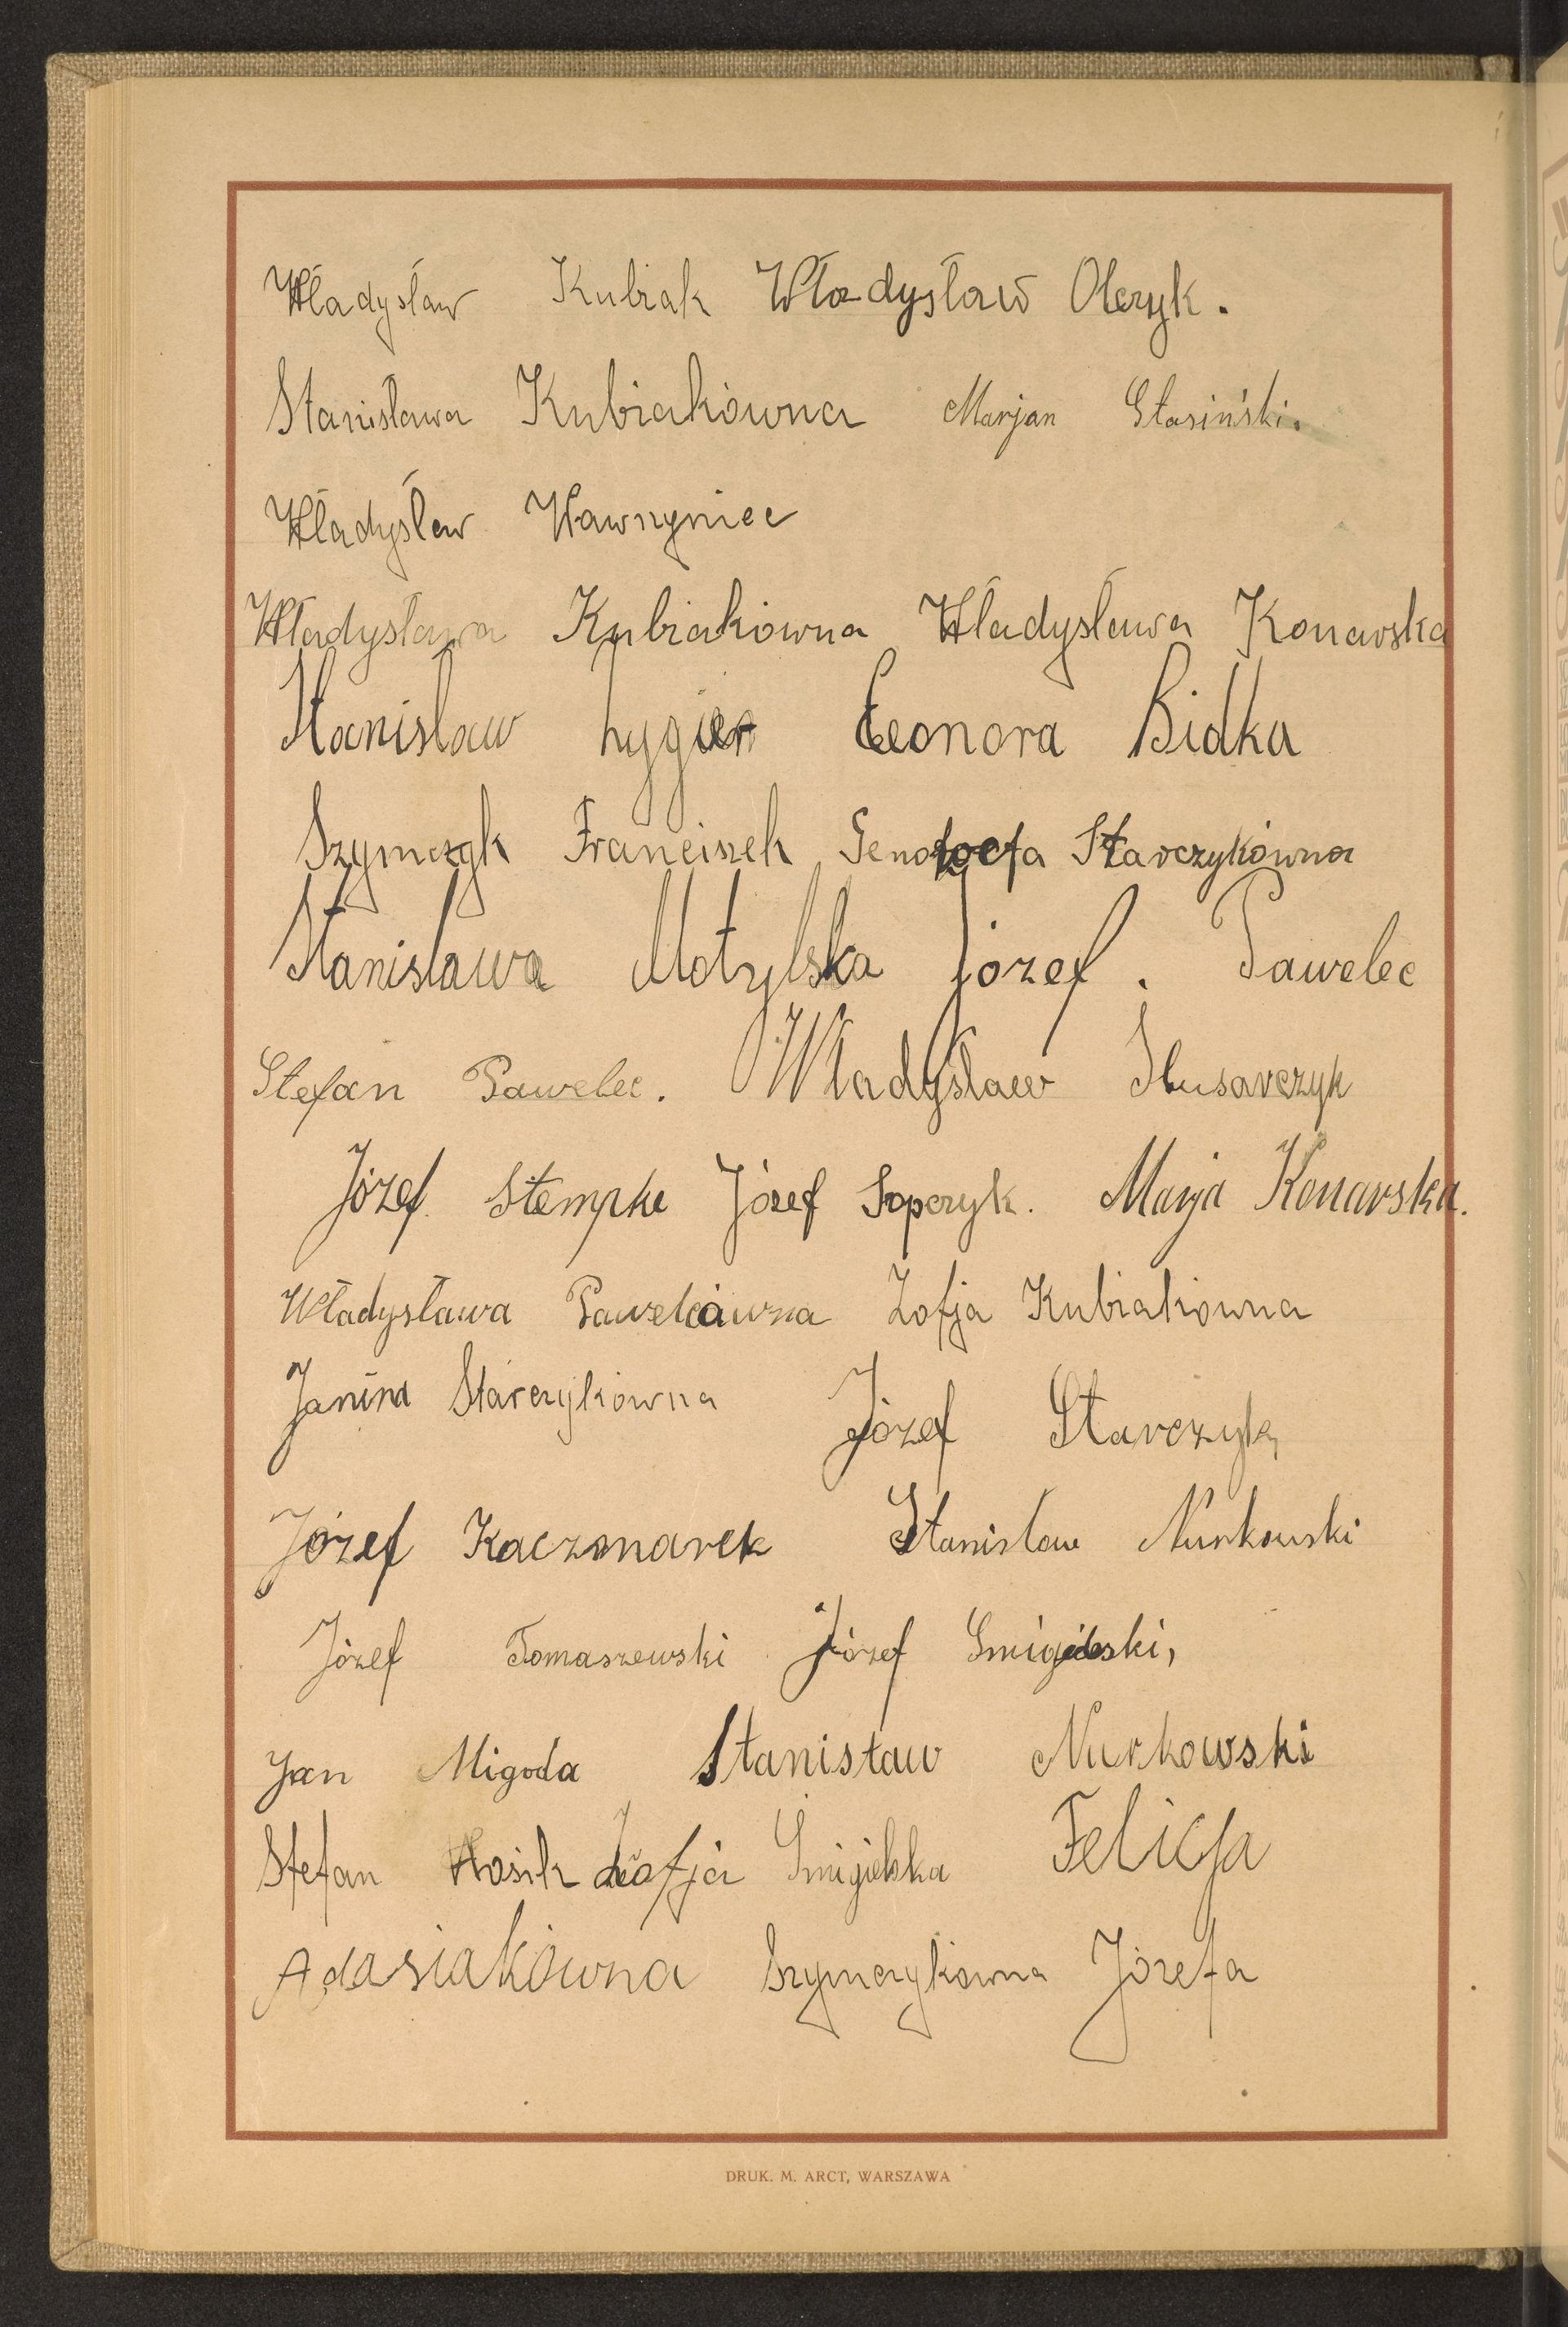 Władysław Kubiak Władysław Olczyk.
Stanisława Kubiakówna Marjan Stasiński.
Władysław Wawrzyniec
Władysława Kubiakówna Władysława Konarska
Stanisław Łygier Leonora Bidka
Szymczyk Franciszek Genowefa Starczykówna
Stanisława Motylska Józef. Pawelec
Stefan Pawelec. Władysław Ślusarczyk
Józef Stempke Józef Sopczyk. Marja Konarska.
Władysława Pawelcówna Zofja Kubiakówna
Janina Starczykówna Józef Starczyk
Józef Kaczmarek Stanisław Nurkowski
Józef Tomaszewski Józef Smigielski,
Jan Migoda Stanisław Nurkowski
Stefan Zofja Śmigielska Felicja
Adasiakówna Szymczykówna Józefa
DRUK. M. ARCT, WARSZAWA